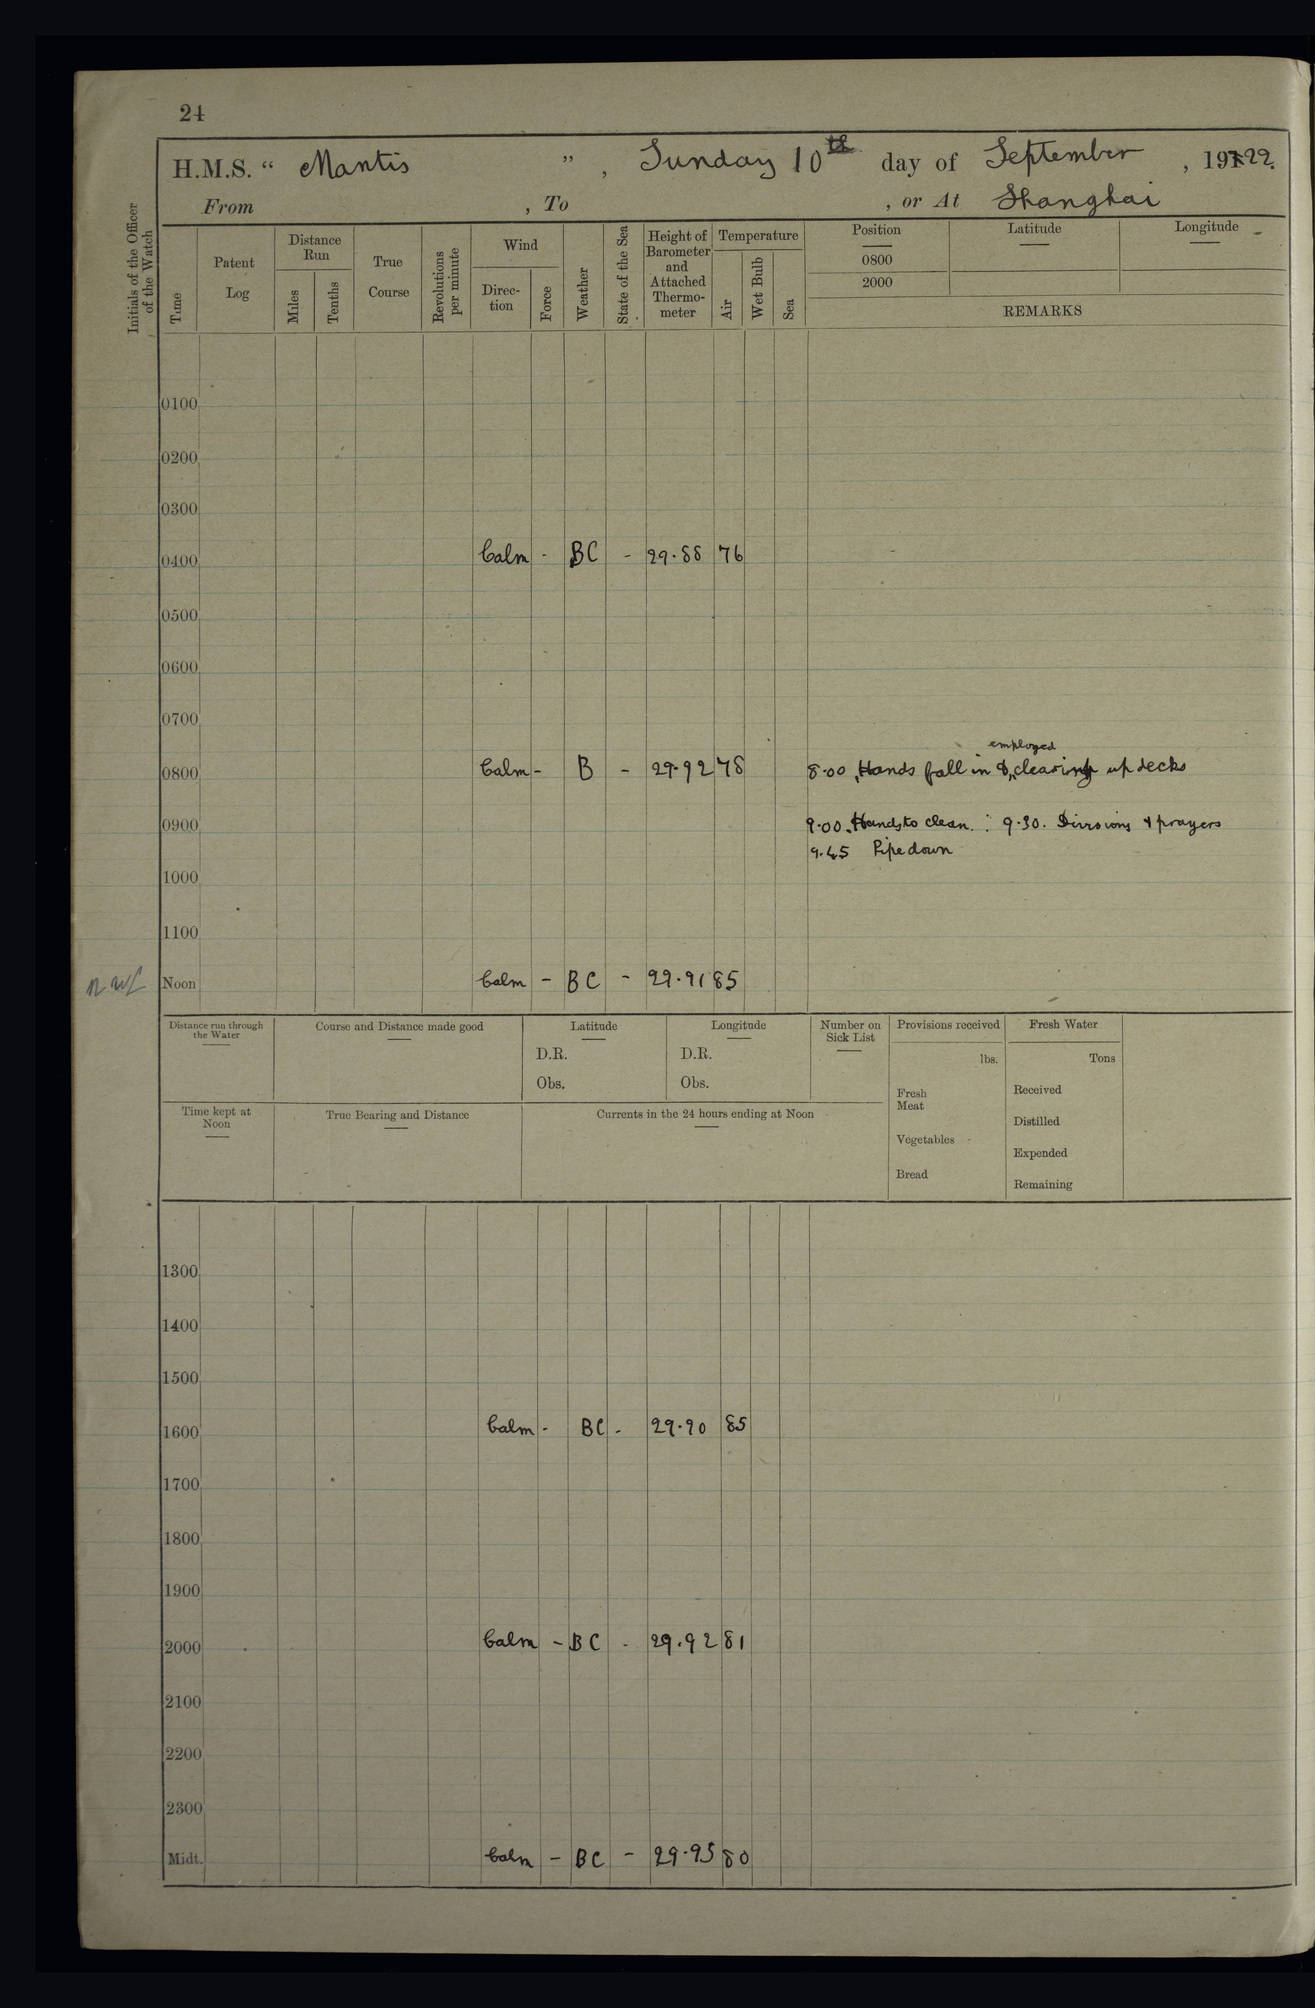 24
H.M.S. “ Mantis ” , Sunday 10th day of September , 1922.
From , To , or At Shanghai
Initials of the Officer of the Watch
Time
Patent Log
Distance Run
Miles
Tenths
True Course
Revolutions per minute
Wind
Direc-tion
Force
Weather
State of the Sea
Height of Barometer and Attached Thermo-meter
Temperature
Air
Wet Bulb
Sea
Position Latitude Longitude
0800
2000
REMARKS
0100
0200
0300
0400 Calm - BC - 29.88 76
0500
0600
0700
employed
0800 Calm - B - 29.92 78 8.00 Hands fall in & clearing up decks
0900 9.00. Hands to clean. : 9.30. Divisions & prayers
9.45 Pipe down
1000
1100
Noon Calm - BC - 29.91 85
Distance run through the Water
Course and Distance made good
Latitude
D.R.
Obs.
Longitude
D.R.
Obs.
Number on Sick List
Provisions received
lbs.
Fresh Meat
Vegetables
Bread
Fresh Water
Tons
Received
Distilled
Expended
Remaining
Time kept at Noon
True Bearing and Distance
Currents in the 24 hours ending at Noon
1300
1400
1500
1600 Calm - BC - 29.90 85
1700
1800
1900
2000 Calm - BC - 29.92 81
2100
2200
2300
Midt. Calm - BC - 29.95 80